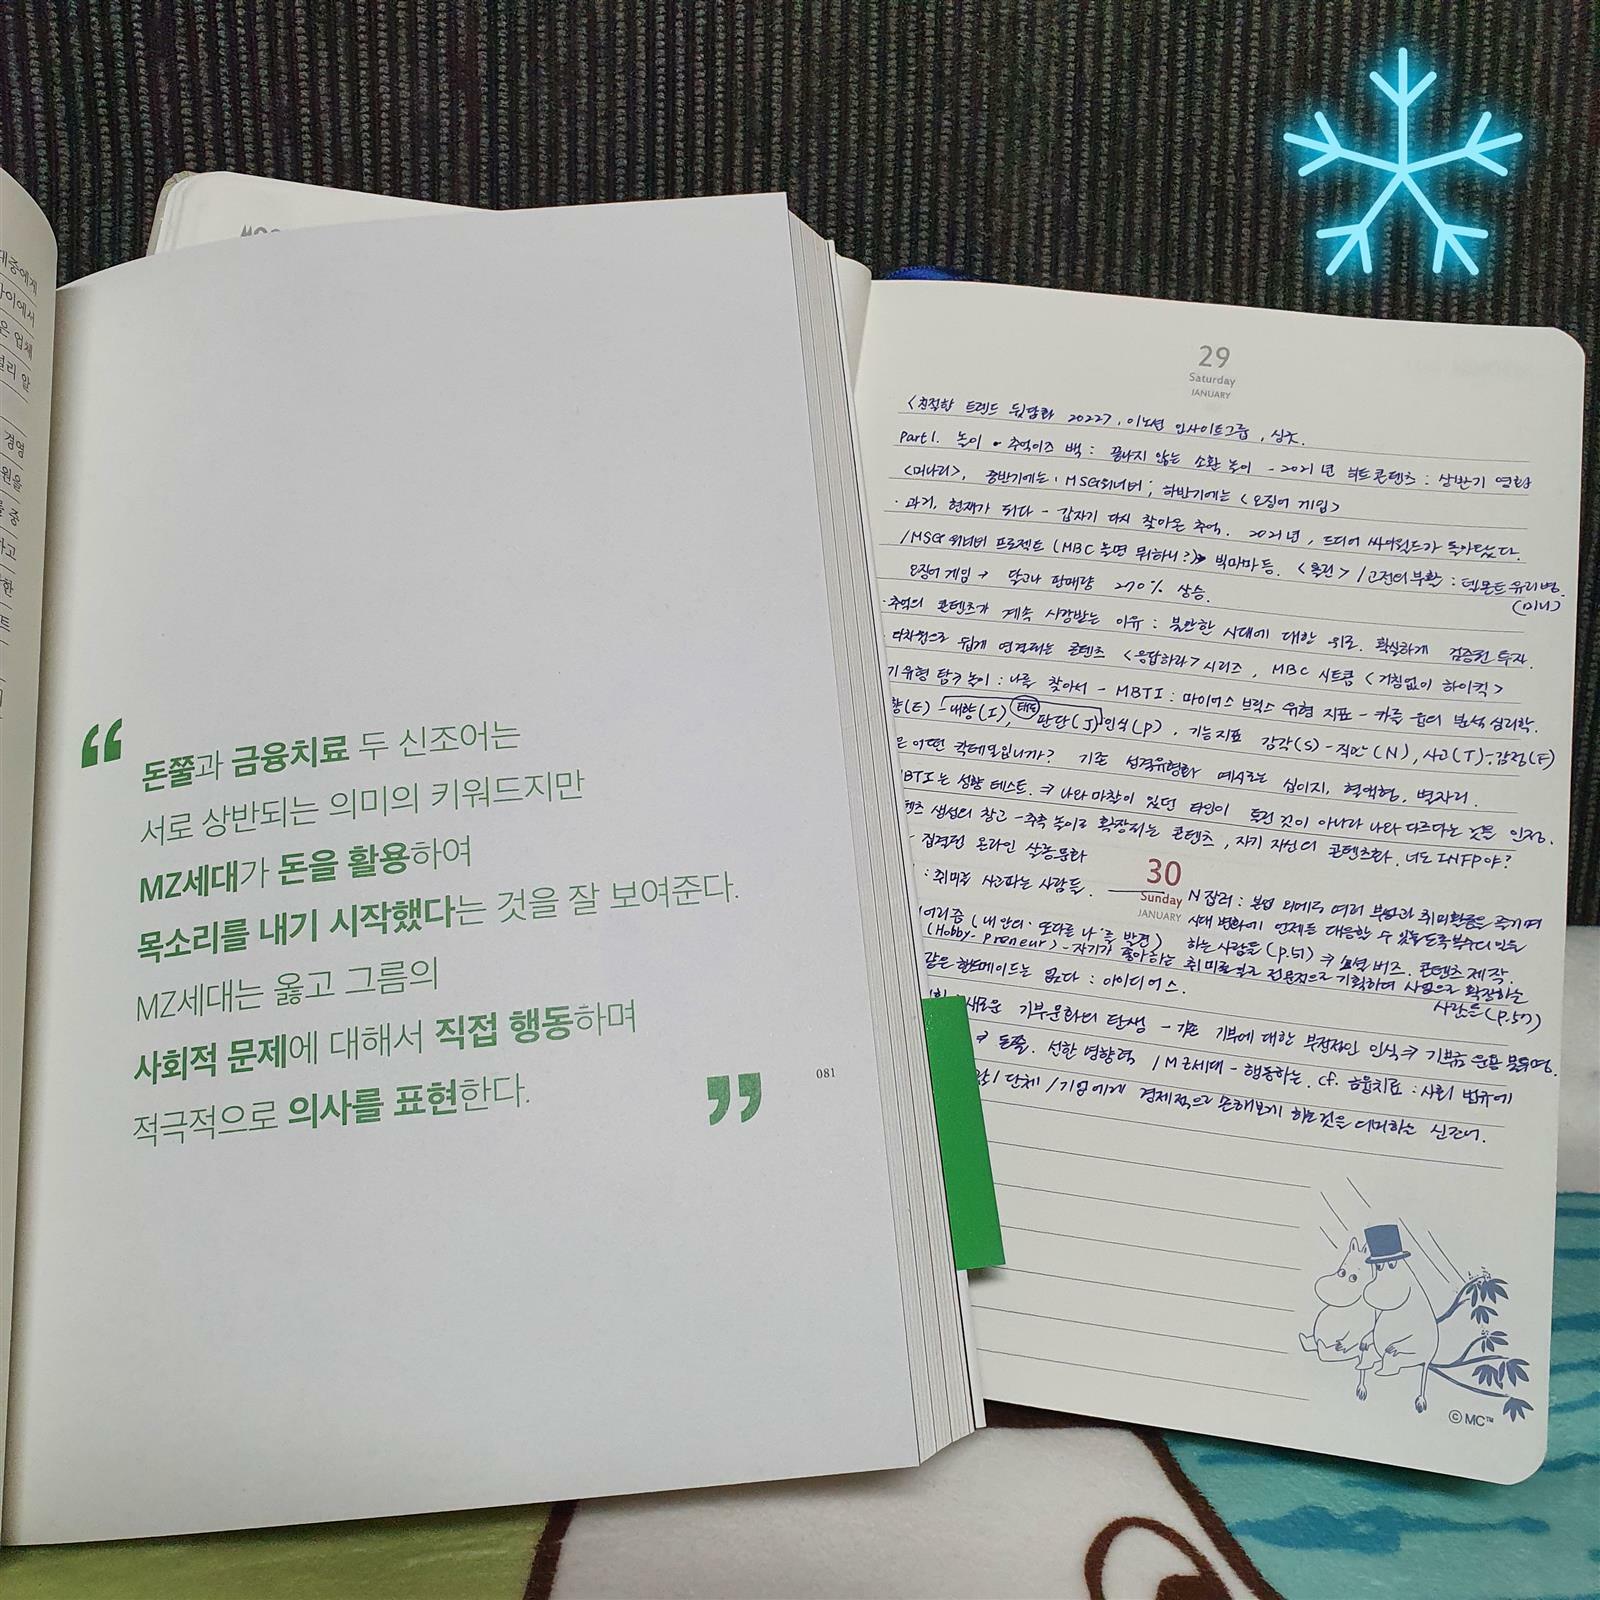 대중에게
사이에서
은 업체
널리 알
경영
원을
를 중
하고
한
트
“
돈쭐과 금융치료 두 신조어는
서로 상반되는 의미의 키워드지만
MZ세대가 돈을 활용하여
목소리를 내기 시작했다는 것을 잘 보여준다.
MZ세대는 옳고 그름의
사회적 문제에 대해서 직접 행동하며
적극적으로 의사를 표현한다.
”
081
29
Saturday
JANUARY
<친절한 트렌드 뒷담화 2022>, 이노션 인사이트그룹, 싱긋.
Part1. 놀이 • 추억이즈 백 : 끝나지 않는 소환 놀이 - 2021년 히트콘텐츠 : 상반기 영화
<미나리>, 중반기에는 'MSG워너비', 하반기에는 <오징어 게임>
· 과거, 현재가 되다 - 갑자기 다시 찾아온 추억. 2021년, 드디어 싸이월드가 돌아왔다.
/MSG워너비 프로젝트 (MBC 놀면 뭐하니?) 빅마마 등. / 고전의 부활 : 델몬트 유리병.
(미니)
오징어 게임 → 달고나 판매량 270% 상승.
· 추억의 콘텐츠가 계속 사랑받는 이유 : 불안한 시대에 대한 위로. 확실하게 검증된 투자.
다차원으로 쉽게 연결되는 콘텐츠 <응답하라> 시리즈, MBC 시트콤 <거침없이 하이킥>
기유형 탐구 놀이 : 나를 찾아서 - MBTI : 마이어스 브릭스 유형 지표 - 카를 융의 분석심리학.
향(E) - 내향(I), 태도 판단(J) 인식(P), 기능지표 감각(S) - 직관(N), 사고(T) - 감정(F)
은 어떤 칵테일입니까? 기존 성격유형화 예시로는 십이지, 혈액형, 별자리.
BTI는 성향 테스트. → 나와 마찰이 있던 타인이 틀린 것이 아니라 나와 다르다는 것을 인정.
텐츠 생성의 창고 - 추측 놀이로 확장되는 콘텐츠, 자기 자신의 콘텐츠화. 너도 INFP야?
집적된 온라인 살롱문화
: 취미를 사고파는 사람들.
30
Sunday
JANUARY
N잡러 : 본업 외에도 여러 부업과 취미활동을 즐기며
시대 변화에 언제든 대응할 수 있도록
하는 사람들 (p.51) → 소셜 버즈. 콘텐츠 제작.
(내 안의 '또다른 나'를 발견)
(Hobby-preneur) - 자기가 좋아하는 취미를 전문적으로 기획하여 사업으로 확장하는
사람들 (p.57)
같은 핸드메이드는 없다 : 아이디어스.
새로운 기부문화의 탄생 - 기존 기부에 대한 부정적인 인식 → 기부금 운용 불투명.
→ 돈쭐. 선한 영향력 / MZ세대 - 행동하는. cf. 금융치료 : 사회 법규에
단체/기업에게 경제적으로 손해보게 하는 것을 의미하는 신조어.
© MC™